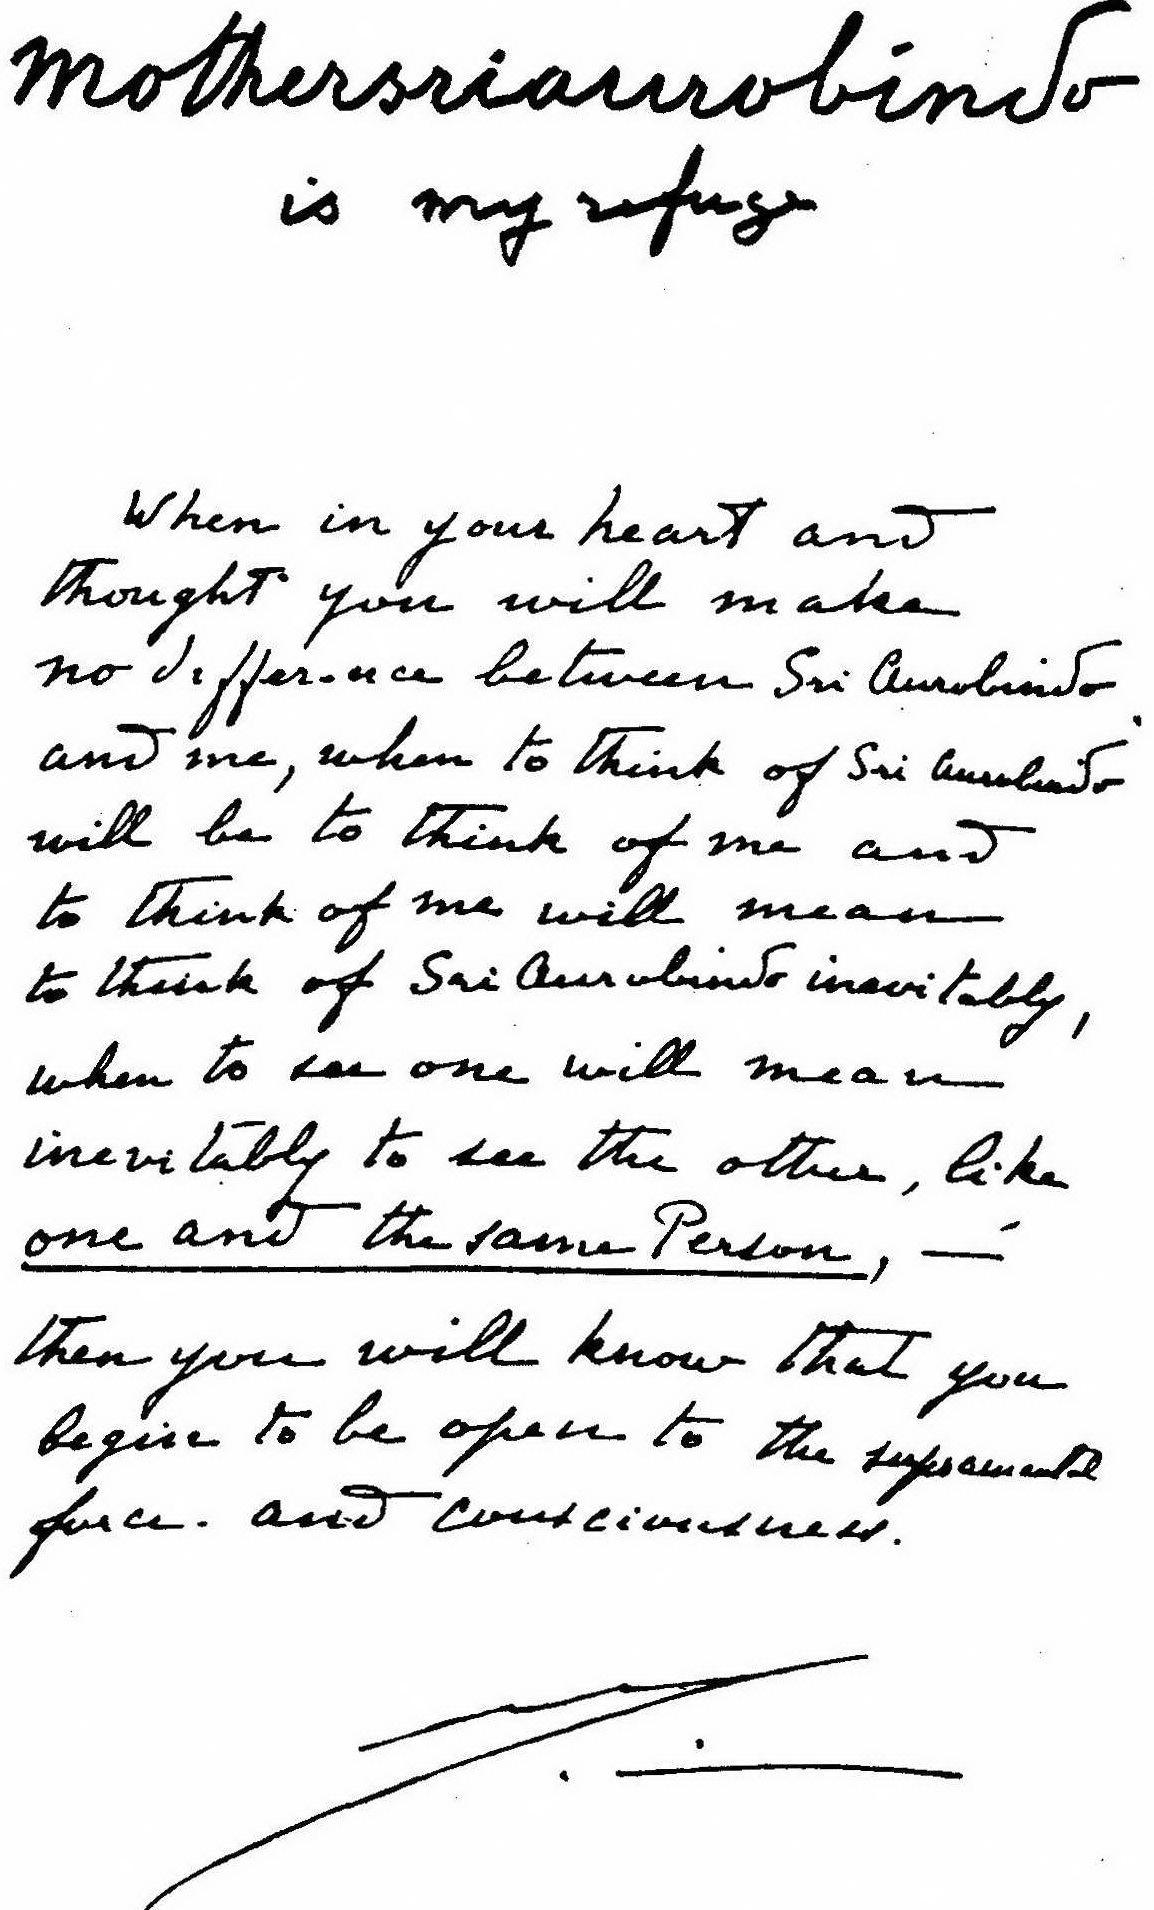 Mothersriaurobindo
is my refuge
When in your heart and
thought you will make
no difference between Sri Aurobindo
and me, when to think of Sri Aurobindo
will be to think of me and
to think of me will mean
to think of Sri Aurobindo inevitably,
when to see one will mean
inevitably to see the other, like
one and the same Person, —
then you will know that you
begin to be open to the supramental
force. and consciousness.